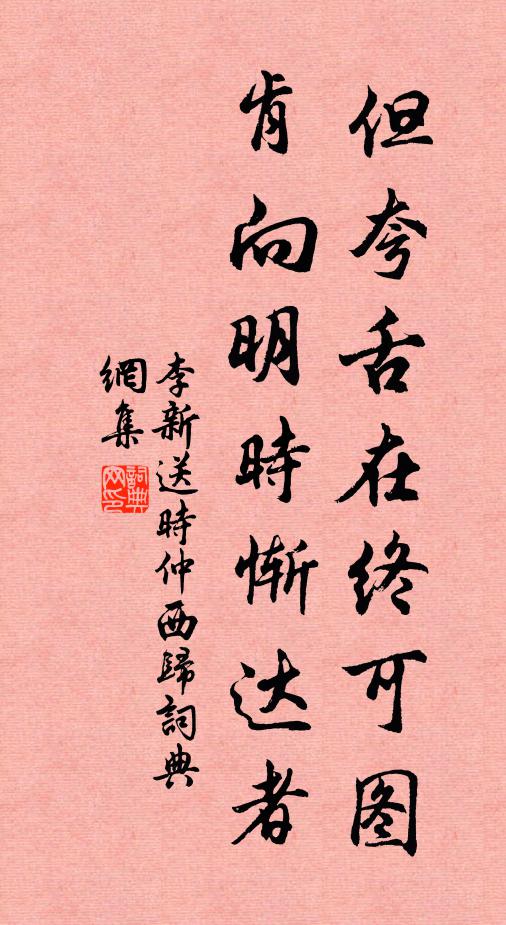 但夸舌在终可图
肯向明時惭达者
李新送時仲西歸詞典
網集
詞典
网印